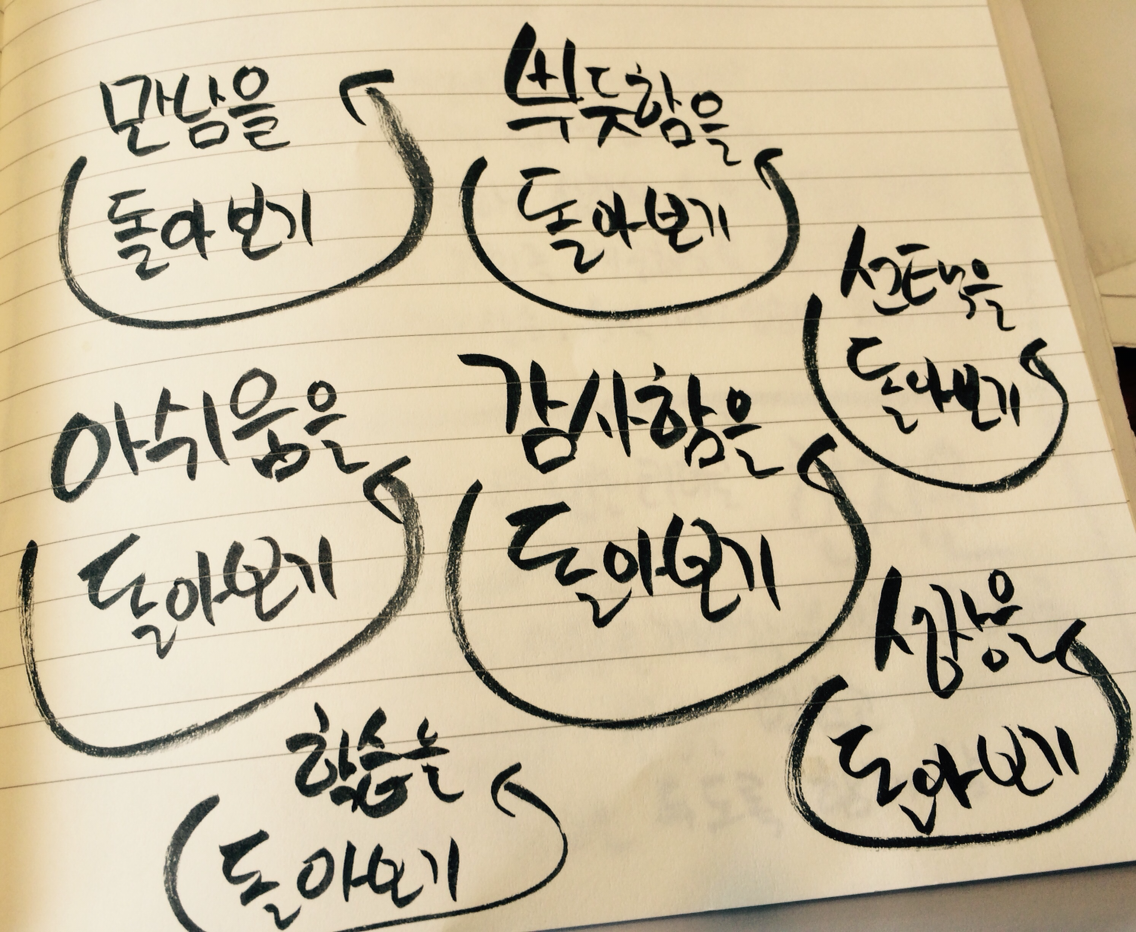 만남을
돌아보기
뿌듯함을
돌아보기
선택을
돌아보기
아쉬움을
돌아보기
감사함을
돌아보기
성장을
돌아보기
학습을
돌아보기